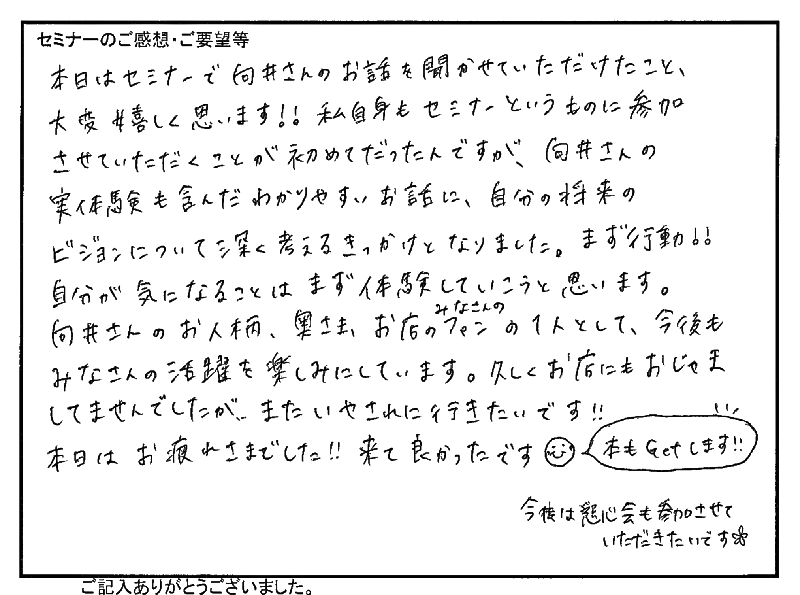 セミナーのご感想・ご要望等
本日はセミナーで向井さんのお話を聞かせていただけたこと、
大変嬉しく思います!! 私自身もセミナーというものに参加
させていただくことが初めてだったんですが、向井さんの
実体験も含んだわかりやすいお話に、自分の将来の
ビジョンについて深く考えるきっかけとなりました。まず行動!!
自分が気になることはまず体験していこうと思います。
みなさんの
向井さんのお人柄、奥さま、お店のファンの1人として、今後も
みなさんの活躍を楽しみにしています。久しくお店にもおじゃま
してませんでしたが…またいやされに行きたいです!!
本日はお疲れさまでした!! 来て良かったです
本もGetします!!
今後は 心会も参加させて
いただきたいです
ご記入ありがとうございました。